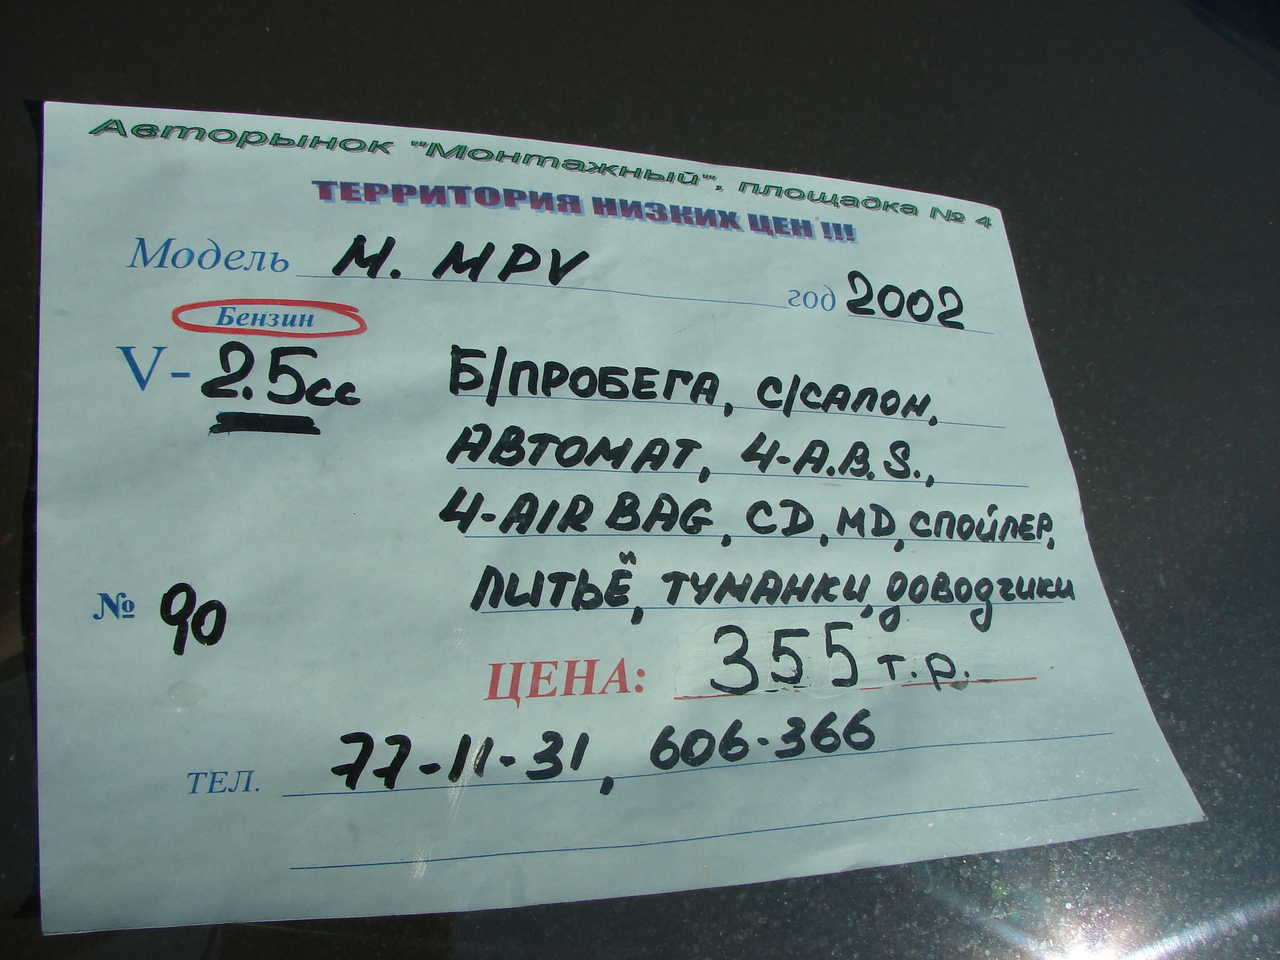 Авторынок ""Монтажный"", площадка № 4
ТЕРРИТОРИЯ НИЗКИХ ЦЕН !!!
Модель М. MPV год 2002
Бензин
V- 2.5сс
Б/ПРОБЕГА, С/САЛОН,
АВТОМАТ, 4-A.B.S.,
4-AIR BAG, CD, MD, СПОЙЛЕР,
ЛИТЬЁ, ТУМАНКИ, доводчики
№ 90
ЦЕНА: 355 т.р.
ТЕЛ. 77-11-31, 606-366